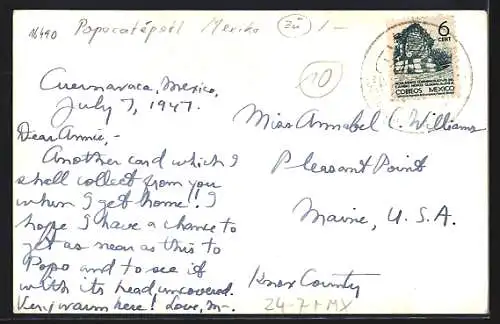 16490 Popocatépetl Mexiko Zü 1-
10
6
CENT
CORREOS MEXICO
Cuernavaca, Mexico,
July 7, 1947.
Dear Annie,-
Another card which I
shall collect from you
when I get home! I
hope I have a chance to
get as near as this to
Popo and to see it
with its head uncovered.
Very warm here! Love, M-.
Miss Annabel C. Williams
Pleasant Point
Maine, U.S.A.
Knox County
24-7+MX